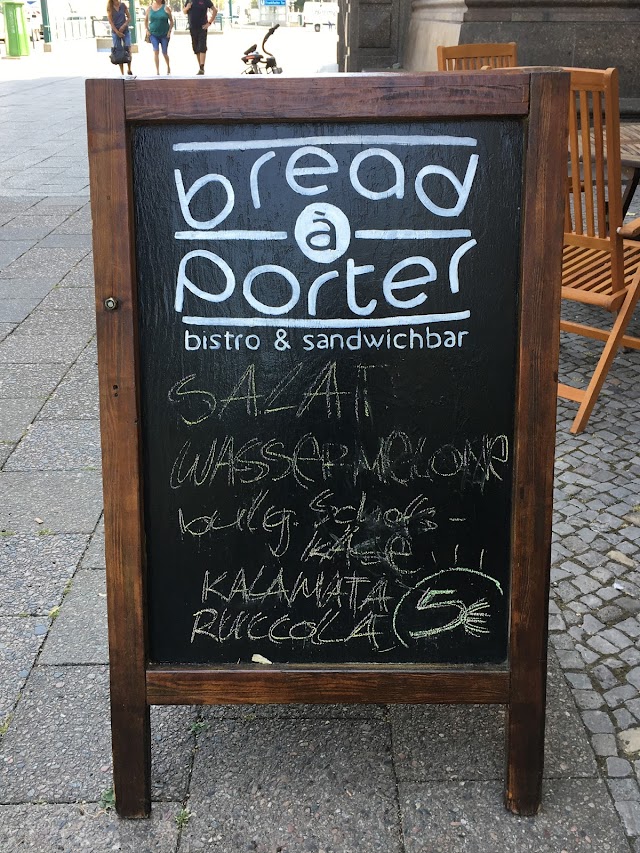 bread
à
porter
bistro & sandwichbar
SALAT
WASSERMELONE
bulg. Schafs-
KÄSE
KALAMATA
RUCCOLA 5€